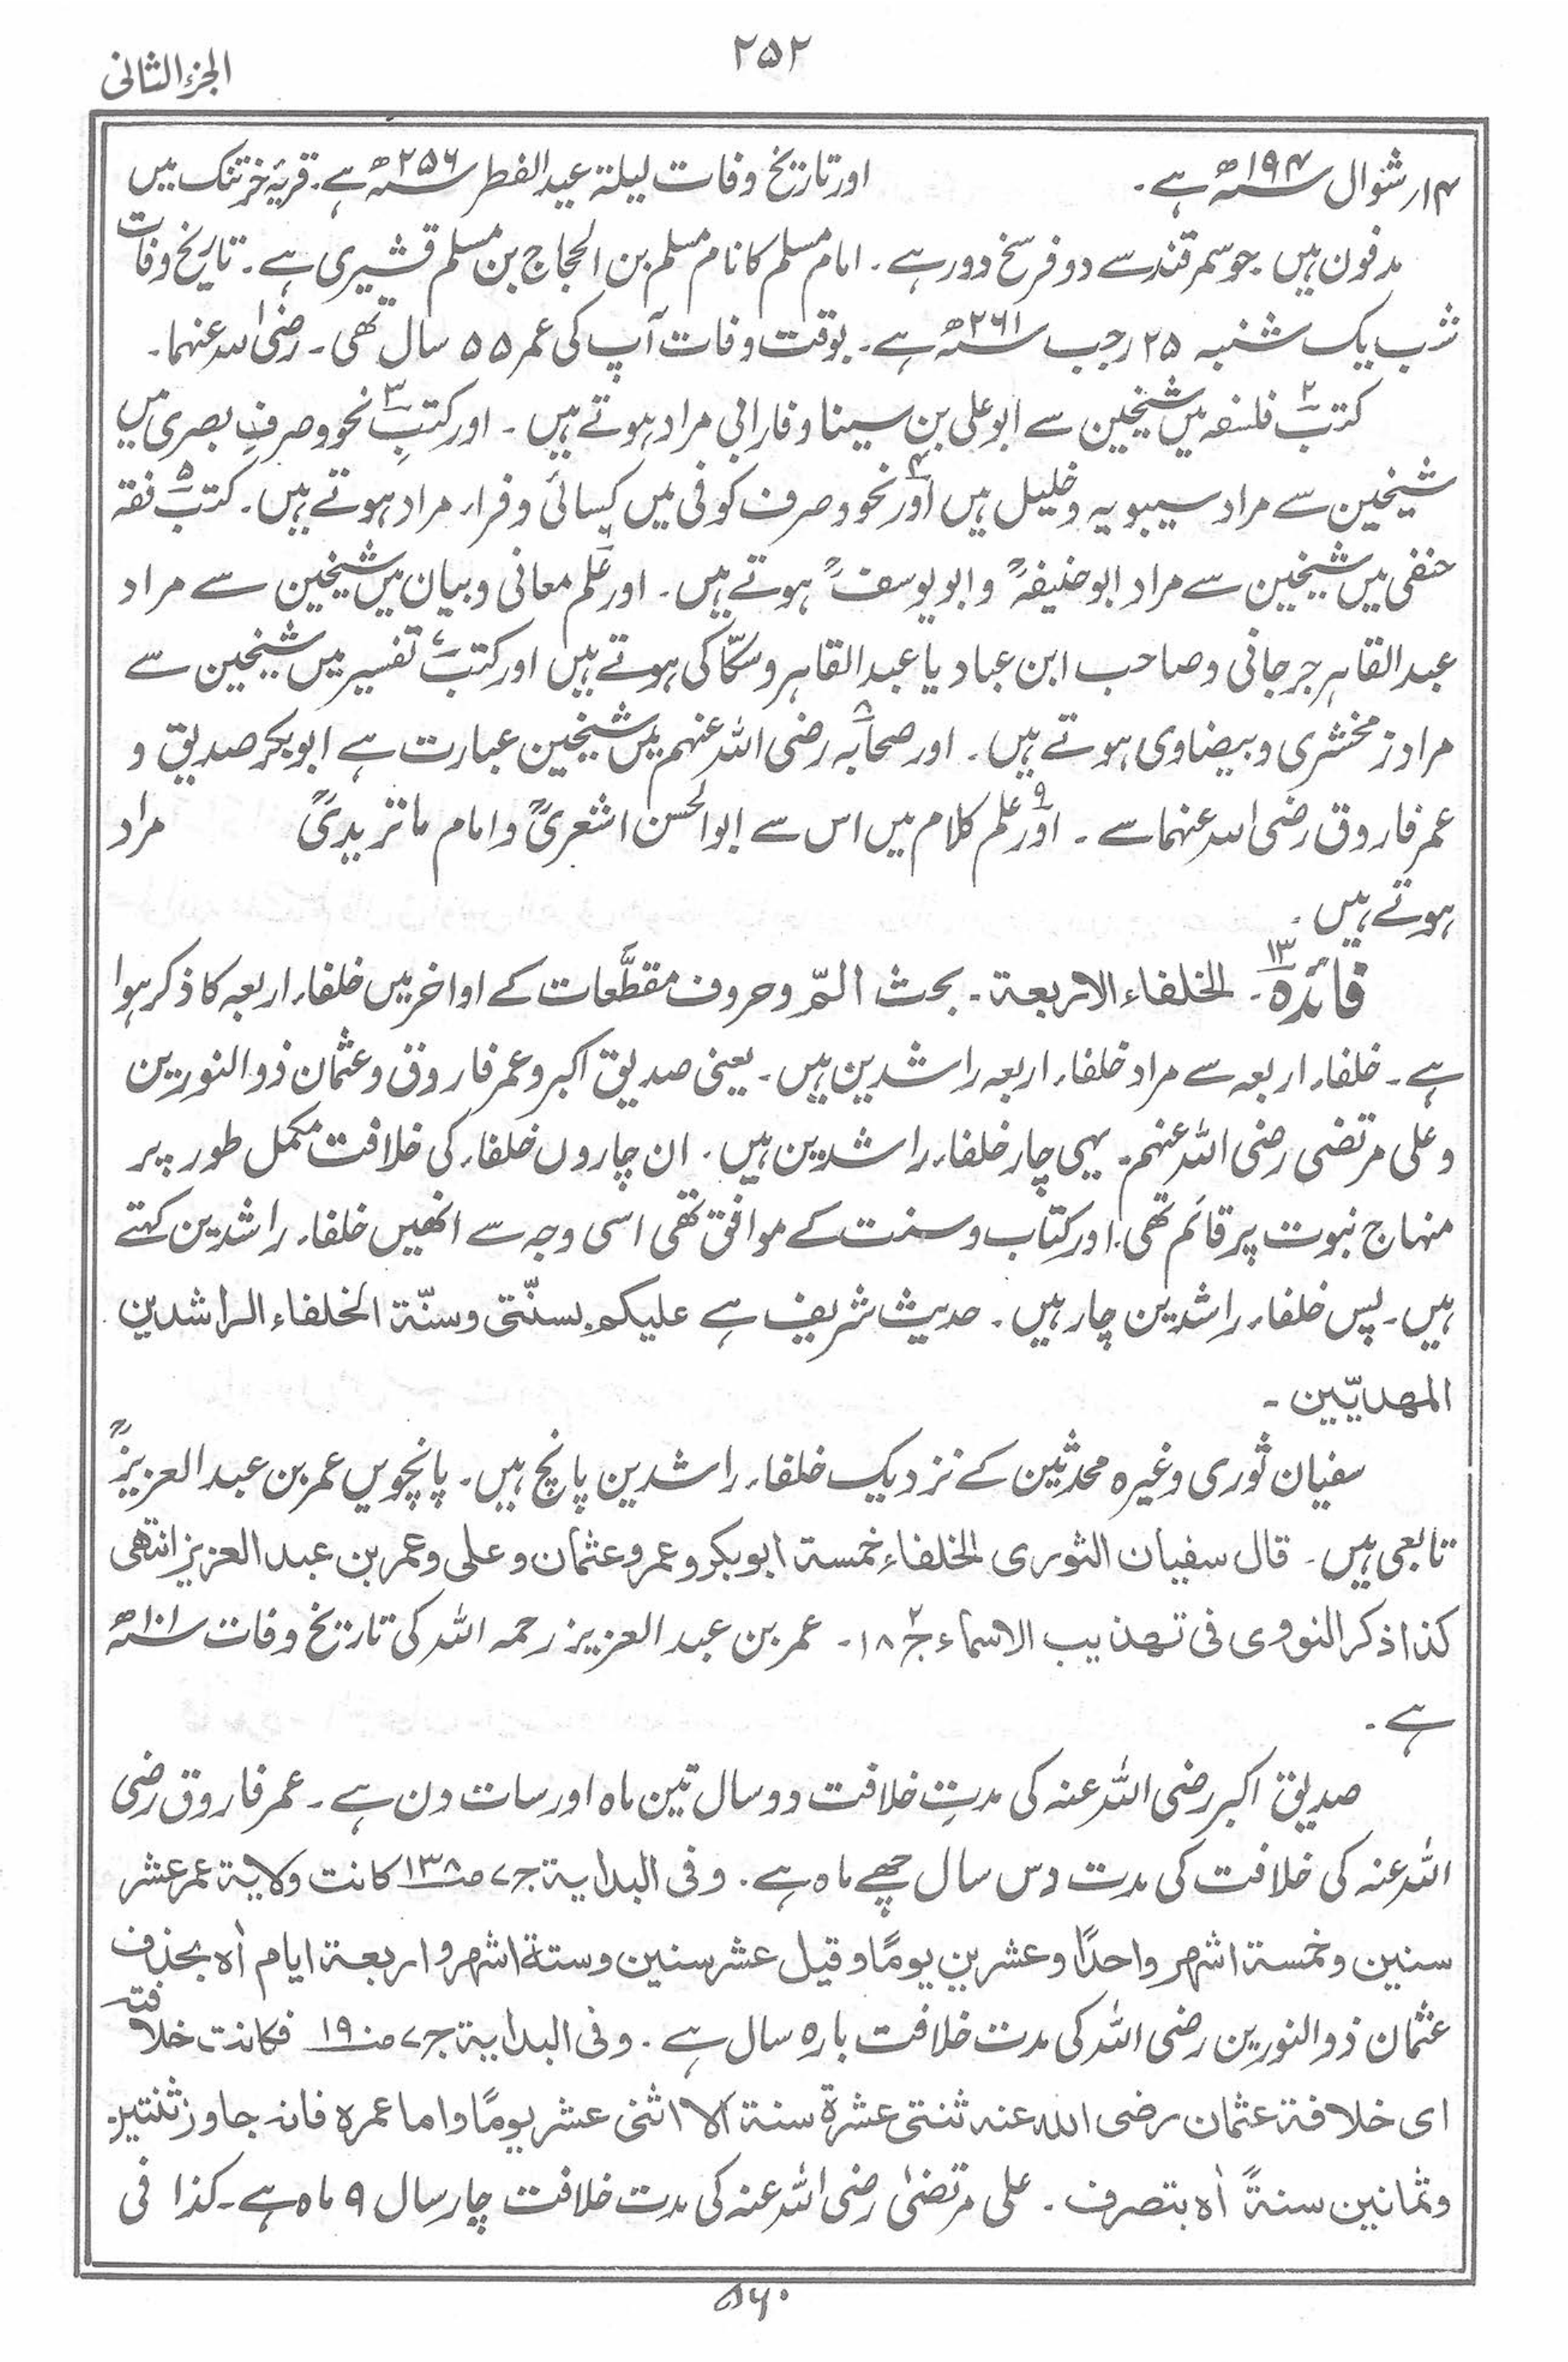 ۲۵۲
الجزء الثانی
۱۴ر شوال ۱۹۴ھ ہے۔ اور تاریخ وفات لیلۃ عید الفطر ۲۵۶ھ ہے۔ قریۂ خرتنک میں
مدفون ہیں۔ جو سمرقند سے دو فرسخ دور ہے۔ امام مسلم کا نام مسلم بن الحجاج بن مسلم قشیری ہے۔ تاریخ وفات
شب یک شنبہ ۲۵ رجب ۲۶۱ھ ہے۔ بوقت وفات آپ کی عمر ۵۵ سال تھی۔ رضی اللہ عنہما۔
کتب۲ فلسفہ میں شیخین سے ابو علی بن سینا و فارابی مراد ہوتے ہیں۔ اور کتبِ۳ نحو و صرفِ بصری میں
شیخین سے مراد سیبویہ و خلیل ہیں اور۴ نحو و صرف کوفی میں کسائی و فراء مراد ہوتے ہیں۔ کتب۵ فقہ
حنفی میں شیخین سے مراد ابو حنیفہؒ و ابو یوسفؒ ہوتے ہیں۔ اور علم۶ معانی و بیان میں شیخین سے مراد
عبد القاہر جرجانی و صاحب ابن عباد یا عبد القاہر و سکّاکی ہوتے ہیں اور کتب۷ تفسیر میں شیخین سے
مراد زمخشری و بیضاوی ہوتے ہیں۔ اور صحابہ۸ رضی اللہ عنہم میں شیخین عبارت ہے ابوبکر صدیق و
عمر فاروق رضی اللہ عنہما سے۔ اور۹ علم کلام میں اس سے ابو الحسن اشعریؒ و امام ماتریدیؒ مراد
ہوتے ہیں۔
فائدہ۱۳۔ الخلفاء الاربعۃ۔ بحث الٓمّ و حروف مقطَّعات کے اواخر میں خلفاء اربعہ کا ذکر ہوا
ہے۔ خلفاء اربعہ سے مراد خلفاء اربعہ راشدین ہیں۔ یعنی صدیق اکبر و عمر فاروق و عثمان ذو النورین
و علی مرتضی رضی اللہ عنہم۔ یہی چار خلفاء راشدین ہیں۔ ان چاروں خلفاء کی خلافت مکمل طور پر
منہاج نبوت پر قائم تھی۔ اور کتاب و سنت کے موافق تھی اسی وجہ سے انھیں خلفاء راشدین کہتے
ہیں۔ پس خلفاء راشدین چار ہیں۔ حدیث شریف ہے علیکم بسنّتی وسنّۃ الخلفاء الراشدین
المھدیّین۔
سفیان ثوری وغیرہ محدثین کے نزدیک خلفاء راشدین پانچ ہیں۔ پانچویں عمر بن عبد العزیزؒ
تابعی ہیں۔ قال سفیان الثوری الخلفاء خمسۃ ابوبکر و عمر و عثمان و علی و عمر بن عبد العزیز انتھی
کذا ذکر النووی فی تھذیب الاسماء ج۲ ۱۸۔ عمر بن عبد العزیز رحمہ اللہ کی تاریخ وفات ۱۰۱ھ
ہے۔
صدیق اکبر رضی اللہ عنہ کی مدتِ خلافت دو سال تین ماہ اور سات دن ہے۔ عمر فاروق رضی
اللہ عنہ کی خلافت کی مدت دس سال چھے ماہ ہے۔ وفی البدایۃ ج۷ صـ۱۳۸ کانت ولایۃ عمر عشر
سنین وخمسۃ اشھر واحدًا وعشرین یومًا وقیل عشر سنین وستۃ اشھر واربعۃ ایام اٰہ بحذف
عثمان ذو النورین رضی اللہ کی مدت خلافت بارہ سال ہے۔ وفی البدایۃ ج۷ صـ۱۹۰ فکانت خلافتہ
ای خلافۃ عثمان رضی اللہ عنہ ثنتی عشرۃ سنۃ الا اثنی عشر یومًا واما عمرہ فانہ جاوز ثنتین
وثمانین سنۃً اٰہ بتصرف۔ علی مرتضیٰ رضی اللہ عنہ کی مدت خلافت چار سال ۹ ماہ ہے۔ کذا فی
۵۶۰